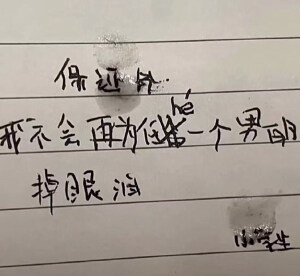 保证
hé
我不会再为任一个男
掉眼泪
小学生